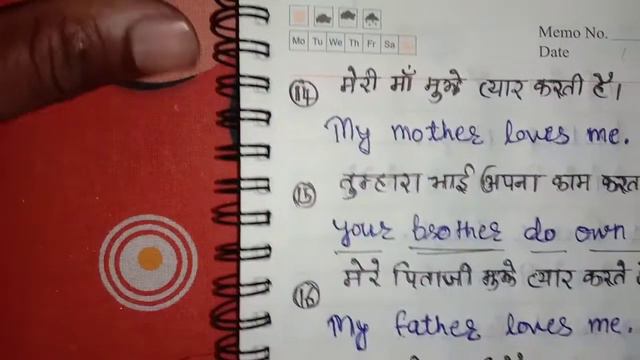 Memo No.
Mo Tu We Th Fr Sa
Date
(14) मेरी माँ मुझे प्यार करती है।
My mother loves me.
(15) तुम्हारा भाई अपना काम करत
your brother do own
(16) मेरे पिताजी मुझे प्यार करते
My father loves me.